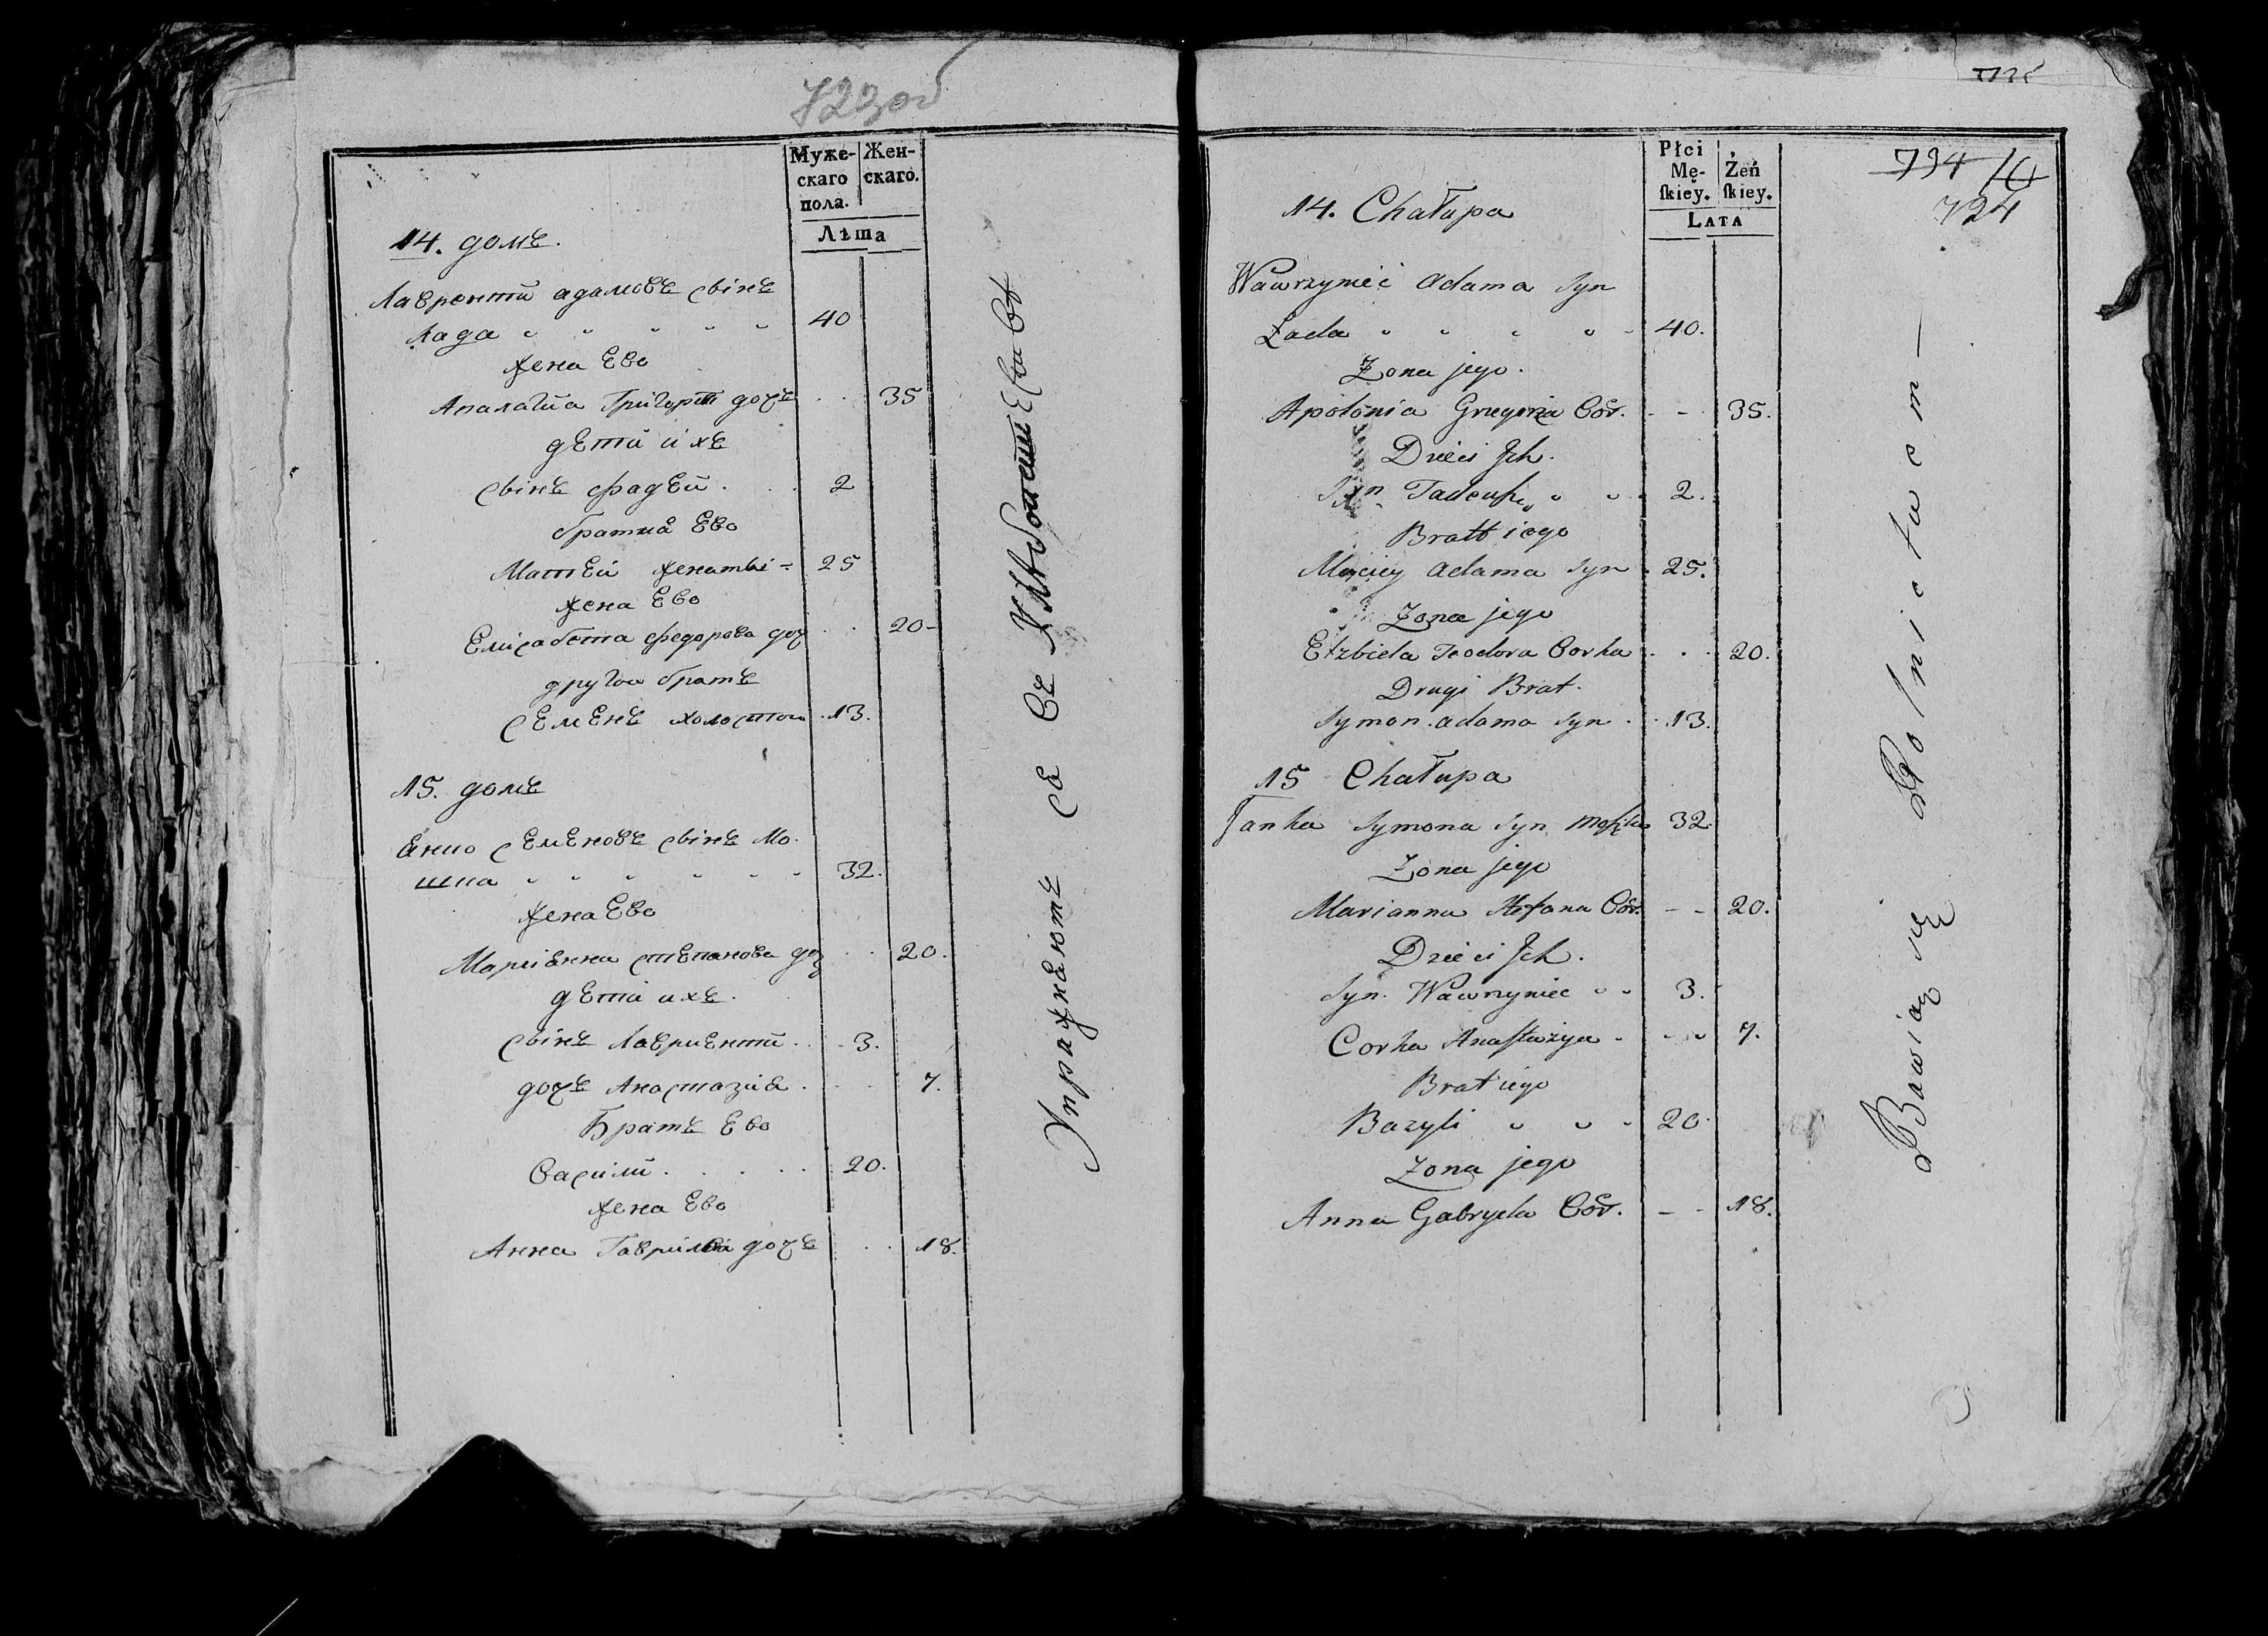 723об
Муже-
скаго
пола.
Жен-
скаго.
Лѣта
14. домъ.
Лаврентий адамовъ сынъ
Лада 40
жена Ево
Апалагия Григорий дочъ 35
дети ихъ
сынъ фадей 2
братиа Ево
Матвей женаты 25
жена Ево
Елисабета федорова доч 20
другои братъ
семенъ холостои 13.
15. домъ
Янко семеновъ сынъ Мо-
шка 32.
жена Ево
Марианна степанова доч 20.
дети ихъ.
сынъ Лавриентий 3.
дочъ Анастазиа 7.
Братъ Ево
Василий 20.
жена Ево
Анна Гаврилова дочъ 18.
Упражняютъ ся въ
Płci
Mę-
skiey.
Żeń
skiey.
LATA
794
724
14. Chałupa
Wawrzyniec Adama Syn
Łada 40.
Żona jego.
Apolonia Gregorza Cór. 35.
Dzieci Jch.
Syn Tadeusz 2.
Bratt iego
Maciey Adama Syn 25.
Żona jego
Elzbieta Teodora Corka 20.
Drugi Brat.
Symon Adama Syn 13.
15 Chałupa
Janka Symona Syn Moszka 32
Żona jego
Marianna Stefana Cór. 20.
Dzieci Jch.
Syn. Wawrzyniec 3.
Corka Anastazya 7.
Brat iego
Bazyli 20
Żona jego
Anna Gabryela Cór. 18.
Bawią się Rolnictwem